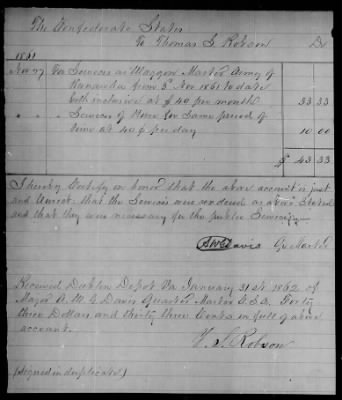 The Confederate States
To Thomas S. Robson Dr
1861
Nov 27 For Services as Waggon Master Army of
Kanawha from 3d Nov 1861 to date
both inclusive at $40 per month 33 33
" " Services of Horse for same period of
time at 40¢ per day 10 00
$ 43 33
I hereby Certify on honor that the above account is just
and Correct that the Services were rendered as above Stated
and that they were necessary for the public Service
A W G Davis Qr Master
Received Dublin Depot Va January 31st 1862 of
Major A. W. G Davis Quarter Master C.S.A. Forty
three Dollars and thirty three Cents in full of above
account.
T. S. Robson
(Signed in duplicate)